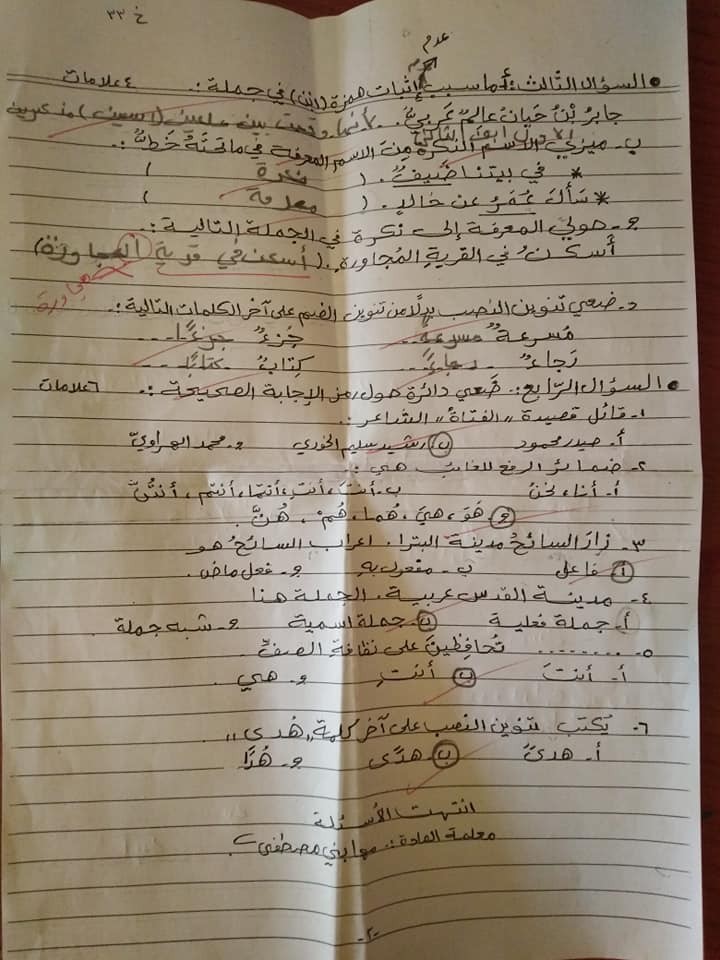 خ ٣٣
عدم
● السؤال الثالث: أ. ما سبب إثبات همزة (ابن) في جملة :. ٤ علامات
جابر بْنُ حيان عالمٌ عَرَبيٌّ. لأنها وقعت بين علمين (اسمين)
الأول ابن الثاني
ب. ميزي الاسم النكرة مِنَ الاسم المعرفة في ما تحتَهُ خَطٌّ :.
* في بيتنا ضَيفٌ. ( نكرة )
* سَأَلَ عُمَرُ عن خالدٍ. ( معرفة )
ج. حولي المعرفة إلى نكرة في الجملة التالية :.
أسكنُ في القريةِ المُجاورةِ. (أسكن في قرية المجاورة)
مجاورة
د. ضعي تنوين النصب بدلًا من تنوين الضم على آخر الكلمات التالية :.
مُسرعةٌ مسرعةً جُزءٌ جزءًا
رَجاءٌ رجاءً كِتابٌ كتابًا
● السؤال الرّابع: ضَعي دائرة حول رمز الإجابة الصحيحة :. ٦ علامات
١- قائل قصيدة "الفتاة" الشاعر :.
أ. حيدر محمود ب. رشيد سليم الخوري ج. محمد الهراويّ
٢- ضمائر الرفع للغائب هي :.
أ- أنا، نحنُ ب- أنتَ، أنتِ، أنتما، أنتم، أنتُنَّ
ج. هُوَ، هيَ، هُما، هُمْ، هُنَّ.
٣- زارَ السائحُ مدينةَ البترا. إعراب السائحُ هو
أ فاعل ب- مفعول به ج- فعل ماضٍ.
٤- مدينة القدس عربية. الجملة هنا
أ. جملة فعلية ب جملة اسمية ج- شبه جملة
٥- ........ تُحافظينَ على نظافةِ الصفِّ.
أ- أنتَ ب أنتِ ج- هي.
٦- يُكتب تنوين النصب على آخر كلمة "هُدى"
أ- هدىً ب- هدًى ج- هُدًا
انتهت الأسئلة
معلمة المادة: مها بني مصطفى
-٢-